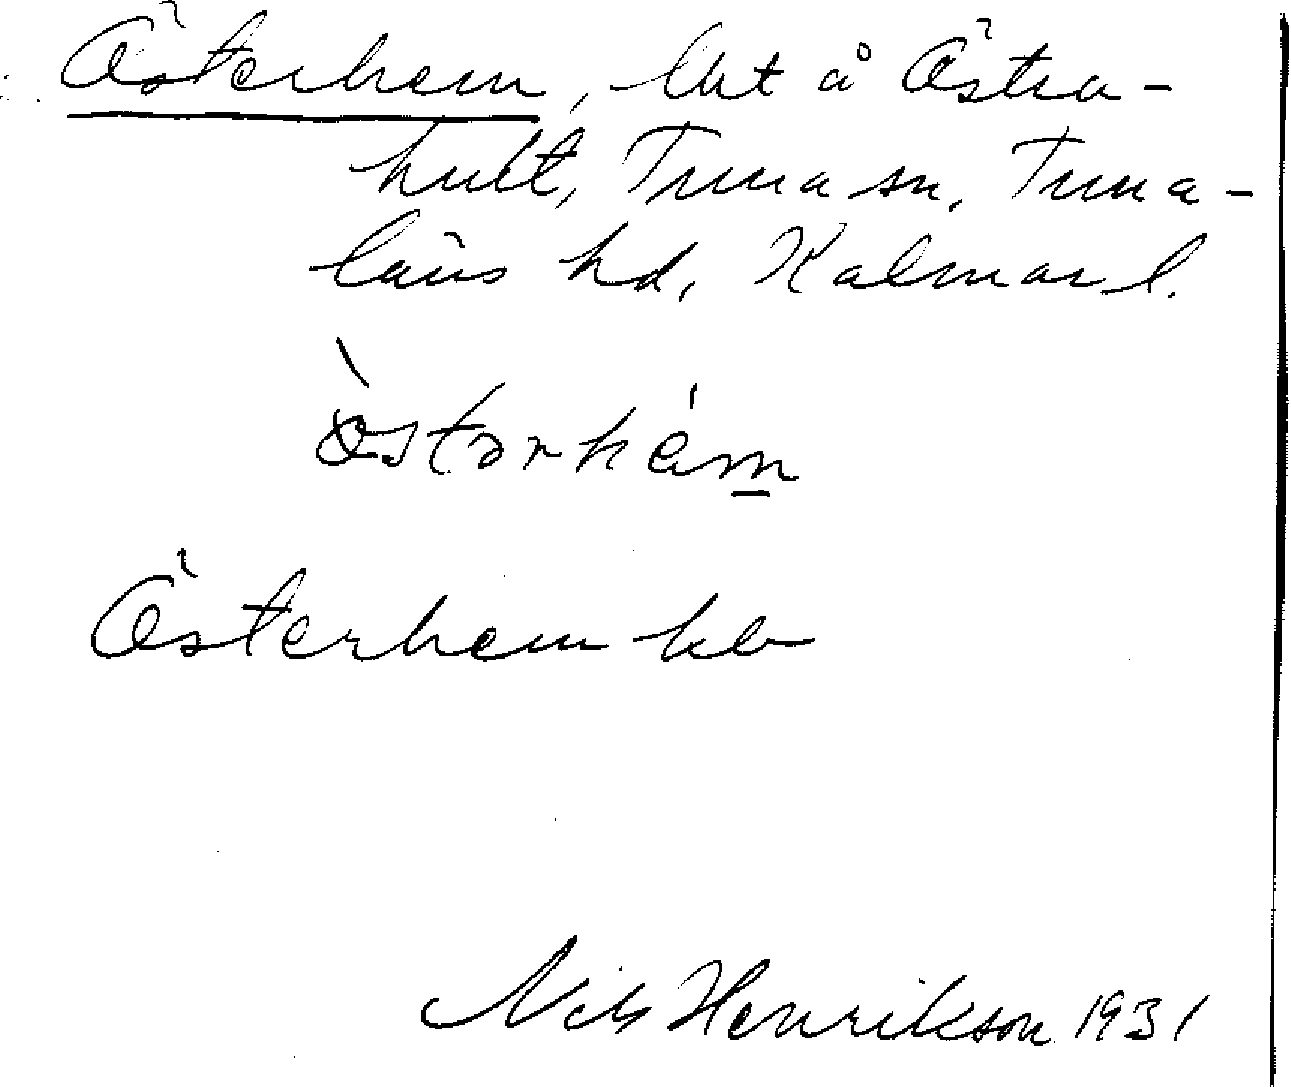 Österhem, lht å Östra-
hult, Tuna sn, Tuna-
läns hd, Kalmar l.
Österhem
Nils Henrikson 1931